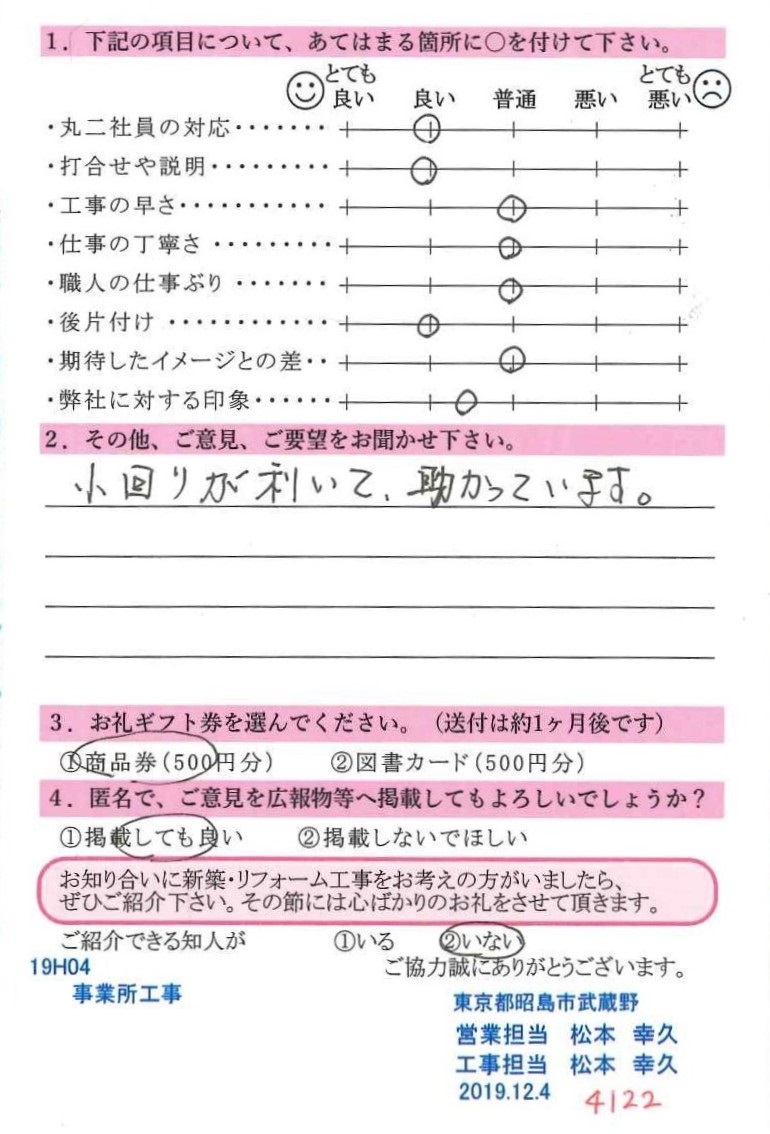 1．下記の項目について、あてはまる箇所に○を付けて下さい。
とても良い 良い 普通 悪い とても悪い
・丸二社員の対応・・・・・・・
・打合せや説明・・・・・・・・・
・工事の早さ・・・・・・・・・・・
・仕事の丁寧さ・・・・・・・・・
・職人の仕事ぶり・・・・・・・
・後片付け・・・・・・・・・・・・
・期待したイメージとの差・・
・弊社に対する印象・・・・・・
2．その他、ご意見、ご要望をお聞かせ下さい。
小回りが利いて、助かっています。
3．お礼ギフト券を選んでください。（送付は約1ヶ月後です）
①商品券（500円分） ②図書カード（500円分）
4．匿名で、ご意見を広報物等へ掲載してもよろしいでしょうか？
①掲載しても良い ②掲載しないでほしい
お知り合いに新築・リフォーム工事をお考えの方がいましたら、
ぜひご紹介下さい。その節には心ばかりのお礼をさせて頂きます。
ご紹介できる知人が ①いる ②いない
ご協力誠にありがとうございます。
19H04
事業所工事
東京都昭島市武蔵野
営業担当 松本 幸久
工事担当 松本 幸久
2019.12.4
4122